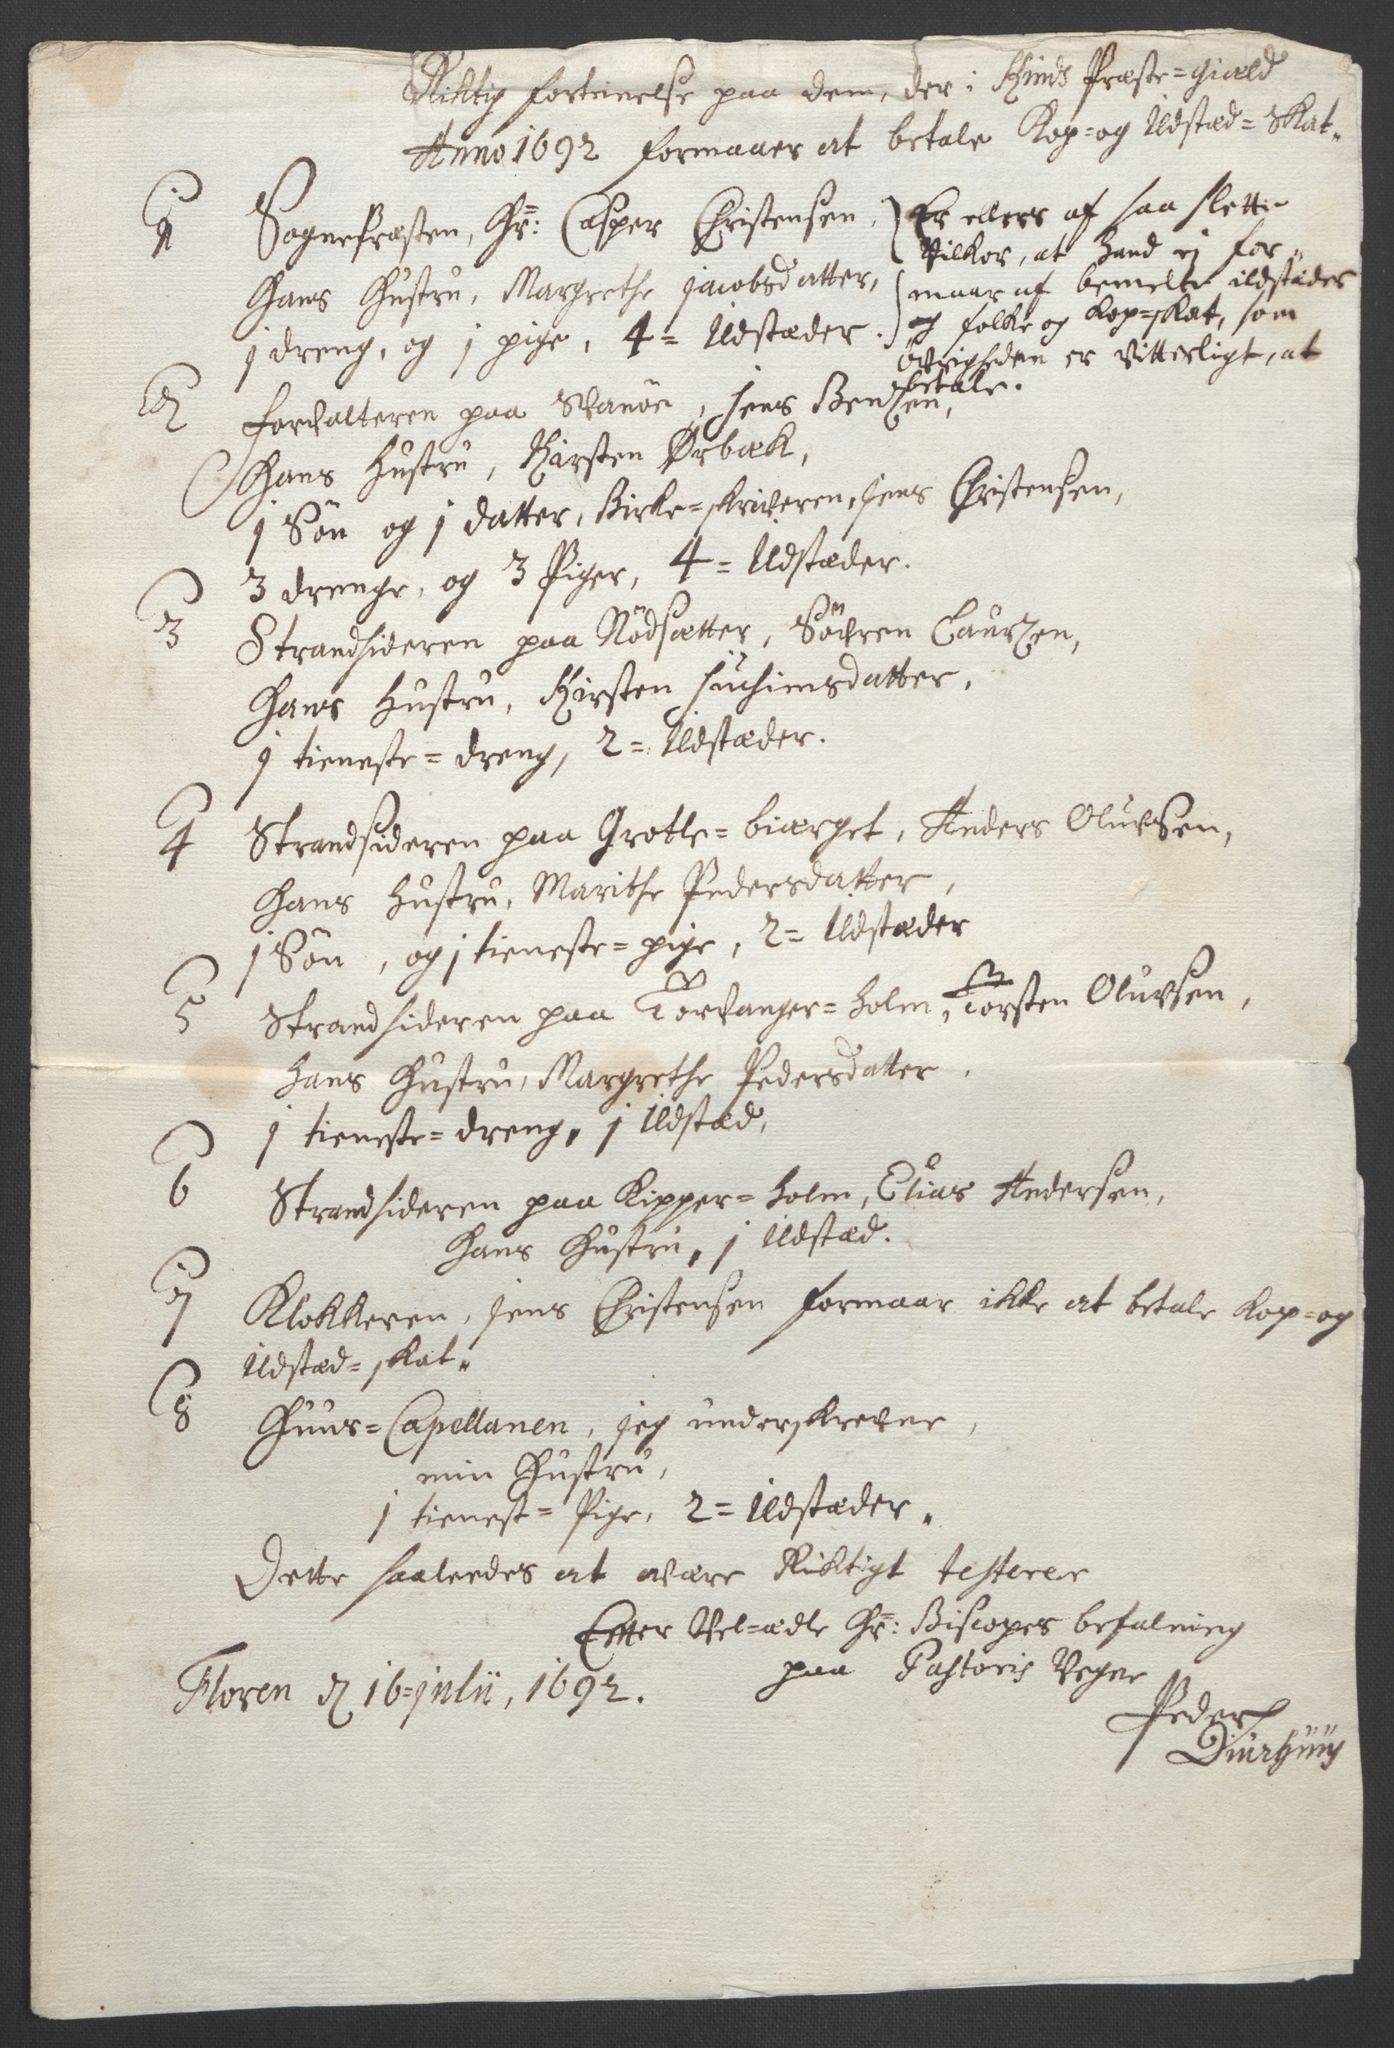 Riktig fortegnelse paa dem, der i Kinds Præste=giæld
Anno 1692 formaaer at betale Kop= og Ildstæd=Skat„
1 Sognepræsten, Hr: Casper Christensen,
Hans Hustru, Margrethe Jacobsdatter,
j dreng, og j pige, 4= Ildstæder.
Er ellers af saa slette
Vilkor, at Hand ej for„
maar af bemelte ildstæder
og folke og Kop=skat, som
Övrigheden er vitterligt, at
betale.
2 Forvalteren paa Svanöe, Jens Bendzen,
Hans Hustru, Kirsten Ørbæk,
j Sön og j datter, Birke=skriveren, Jens Christensen,
3 drenge, og 3 Piger, 4= Ildstæder.
3 Strandsideren paa Nödsætter, Söfren Laurzen,
Hans Hustru, Kirsten Juchimsdatter,
j tieneste=dreng, 2= Ildstæder.
4 Strandsideren paa Grotle=biærget, Anders Oluvsen,
Hans Hustru, Marithe Pedersdatter,
j Sön, og j tieneste=pige, 2= Ildstæder
5 Strandsideren paa Torvanger=holm, Torsten Oluvsen,
Hans Hustru, Margrethe Pedersdatter,
j tieneste=dreng, j Ildstæd,
6 Strandsideren paa Kipper=holm, Elias Andersen,
Hans Hustru, j Ildstæd.
7 Klokkeren, Jens Christensen formaar ikke at betale Kop= og
Ildstæd=skat„
8 Huus=Capellanen, jeg underskrevne,
min Hustru,
j tienest=Pige, 2= Ildstæder„
Dette saaledes at være Riktigt testerer
Efter Vel=ædle Hr: Biscopes befalning
paa Pastoris Vegne
Floren d 16=julii, 1692.
Peder
Diurhuus